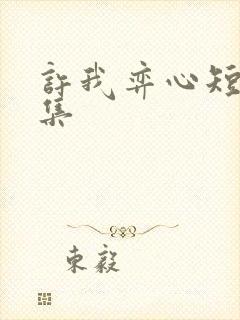 許我弈心短
集
東毅